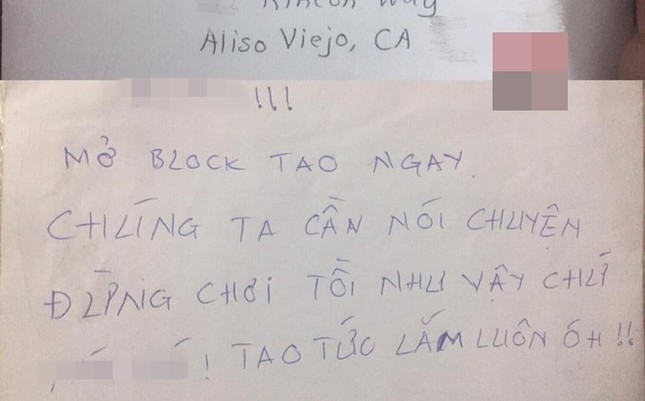 Rincon Way
Aliso Viejo, CA
!!!
MỞ BLOCK TAO NGAY.
CHÚNG TA CẦN NÓI CHUYỆN
ĐỪNG CHƠI TỒI NHƯ VẬY CHỨ
! TAO TỨC LẮM LUÔN ÓH!!